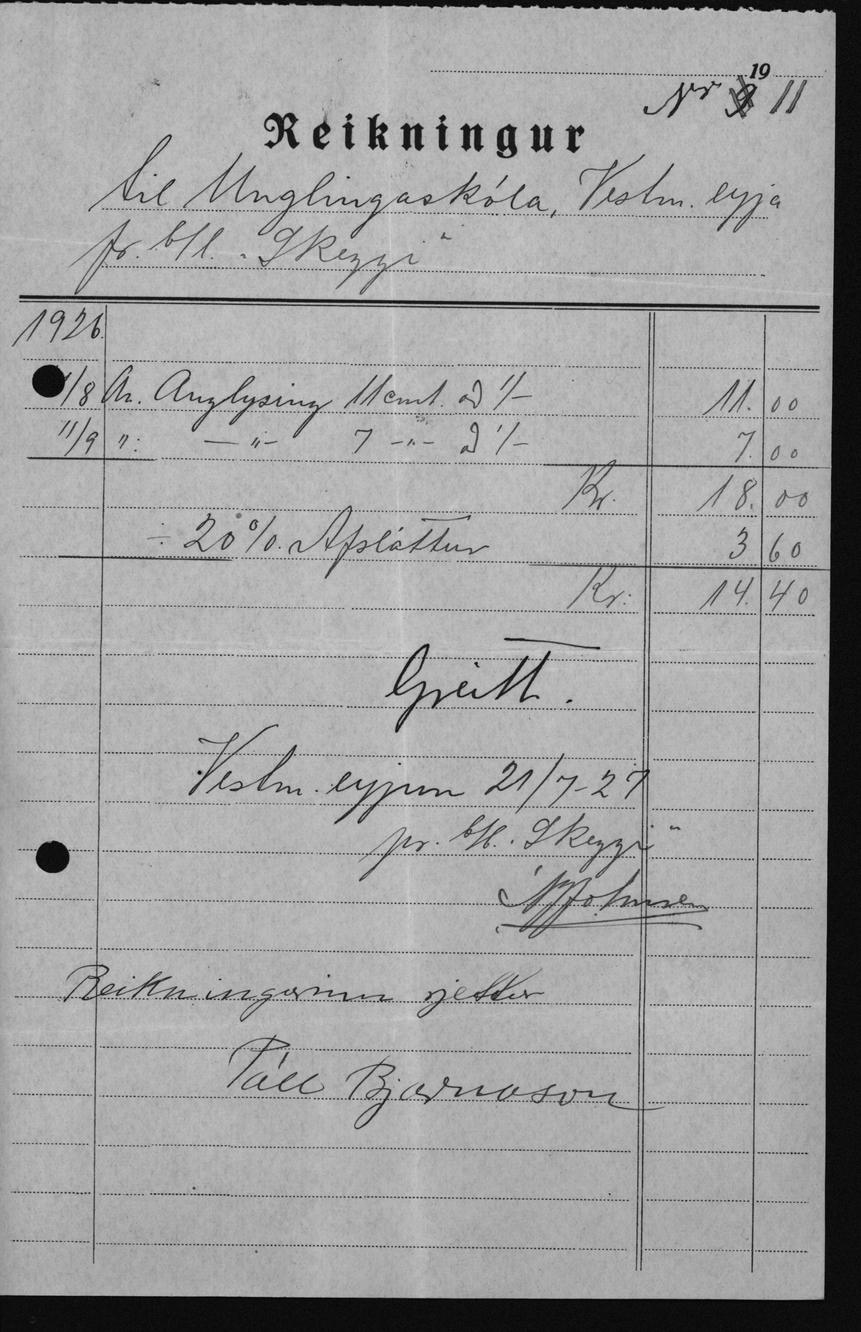 19
Nr 11
Reikningur
til Unglingaskóla, Vestm. eyja
fr. bl. "Skeggi"
1926.
1/8 An. Auglýsing 11 cmt. á 1/- 11.00
11/9 ": —"— 7 -"- á 1/- 7.00
Kr. 18.00
÷ 20%. Afsláttur 3 60
Kr: 14.40
Greitt.
Vestm. eyjum 21/7-27
pr. bl. "Skeggi"
Johnsen
Reikningurinn rjettur
Páll Bjarnason